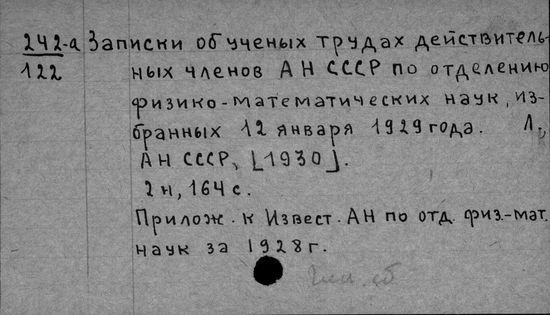 242-а Записки об ученых трудах действитель-
122 ных членов АН СССР по отделению
физико-математических наук, из-
бранных 12 января 1929 года. Л.,
АН СССР, [1930].
2 н, 164 с.
Прилож. к Извест. АН по отд. физ.-мат.
наук за 1928 г.